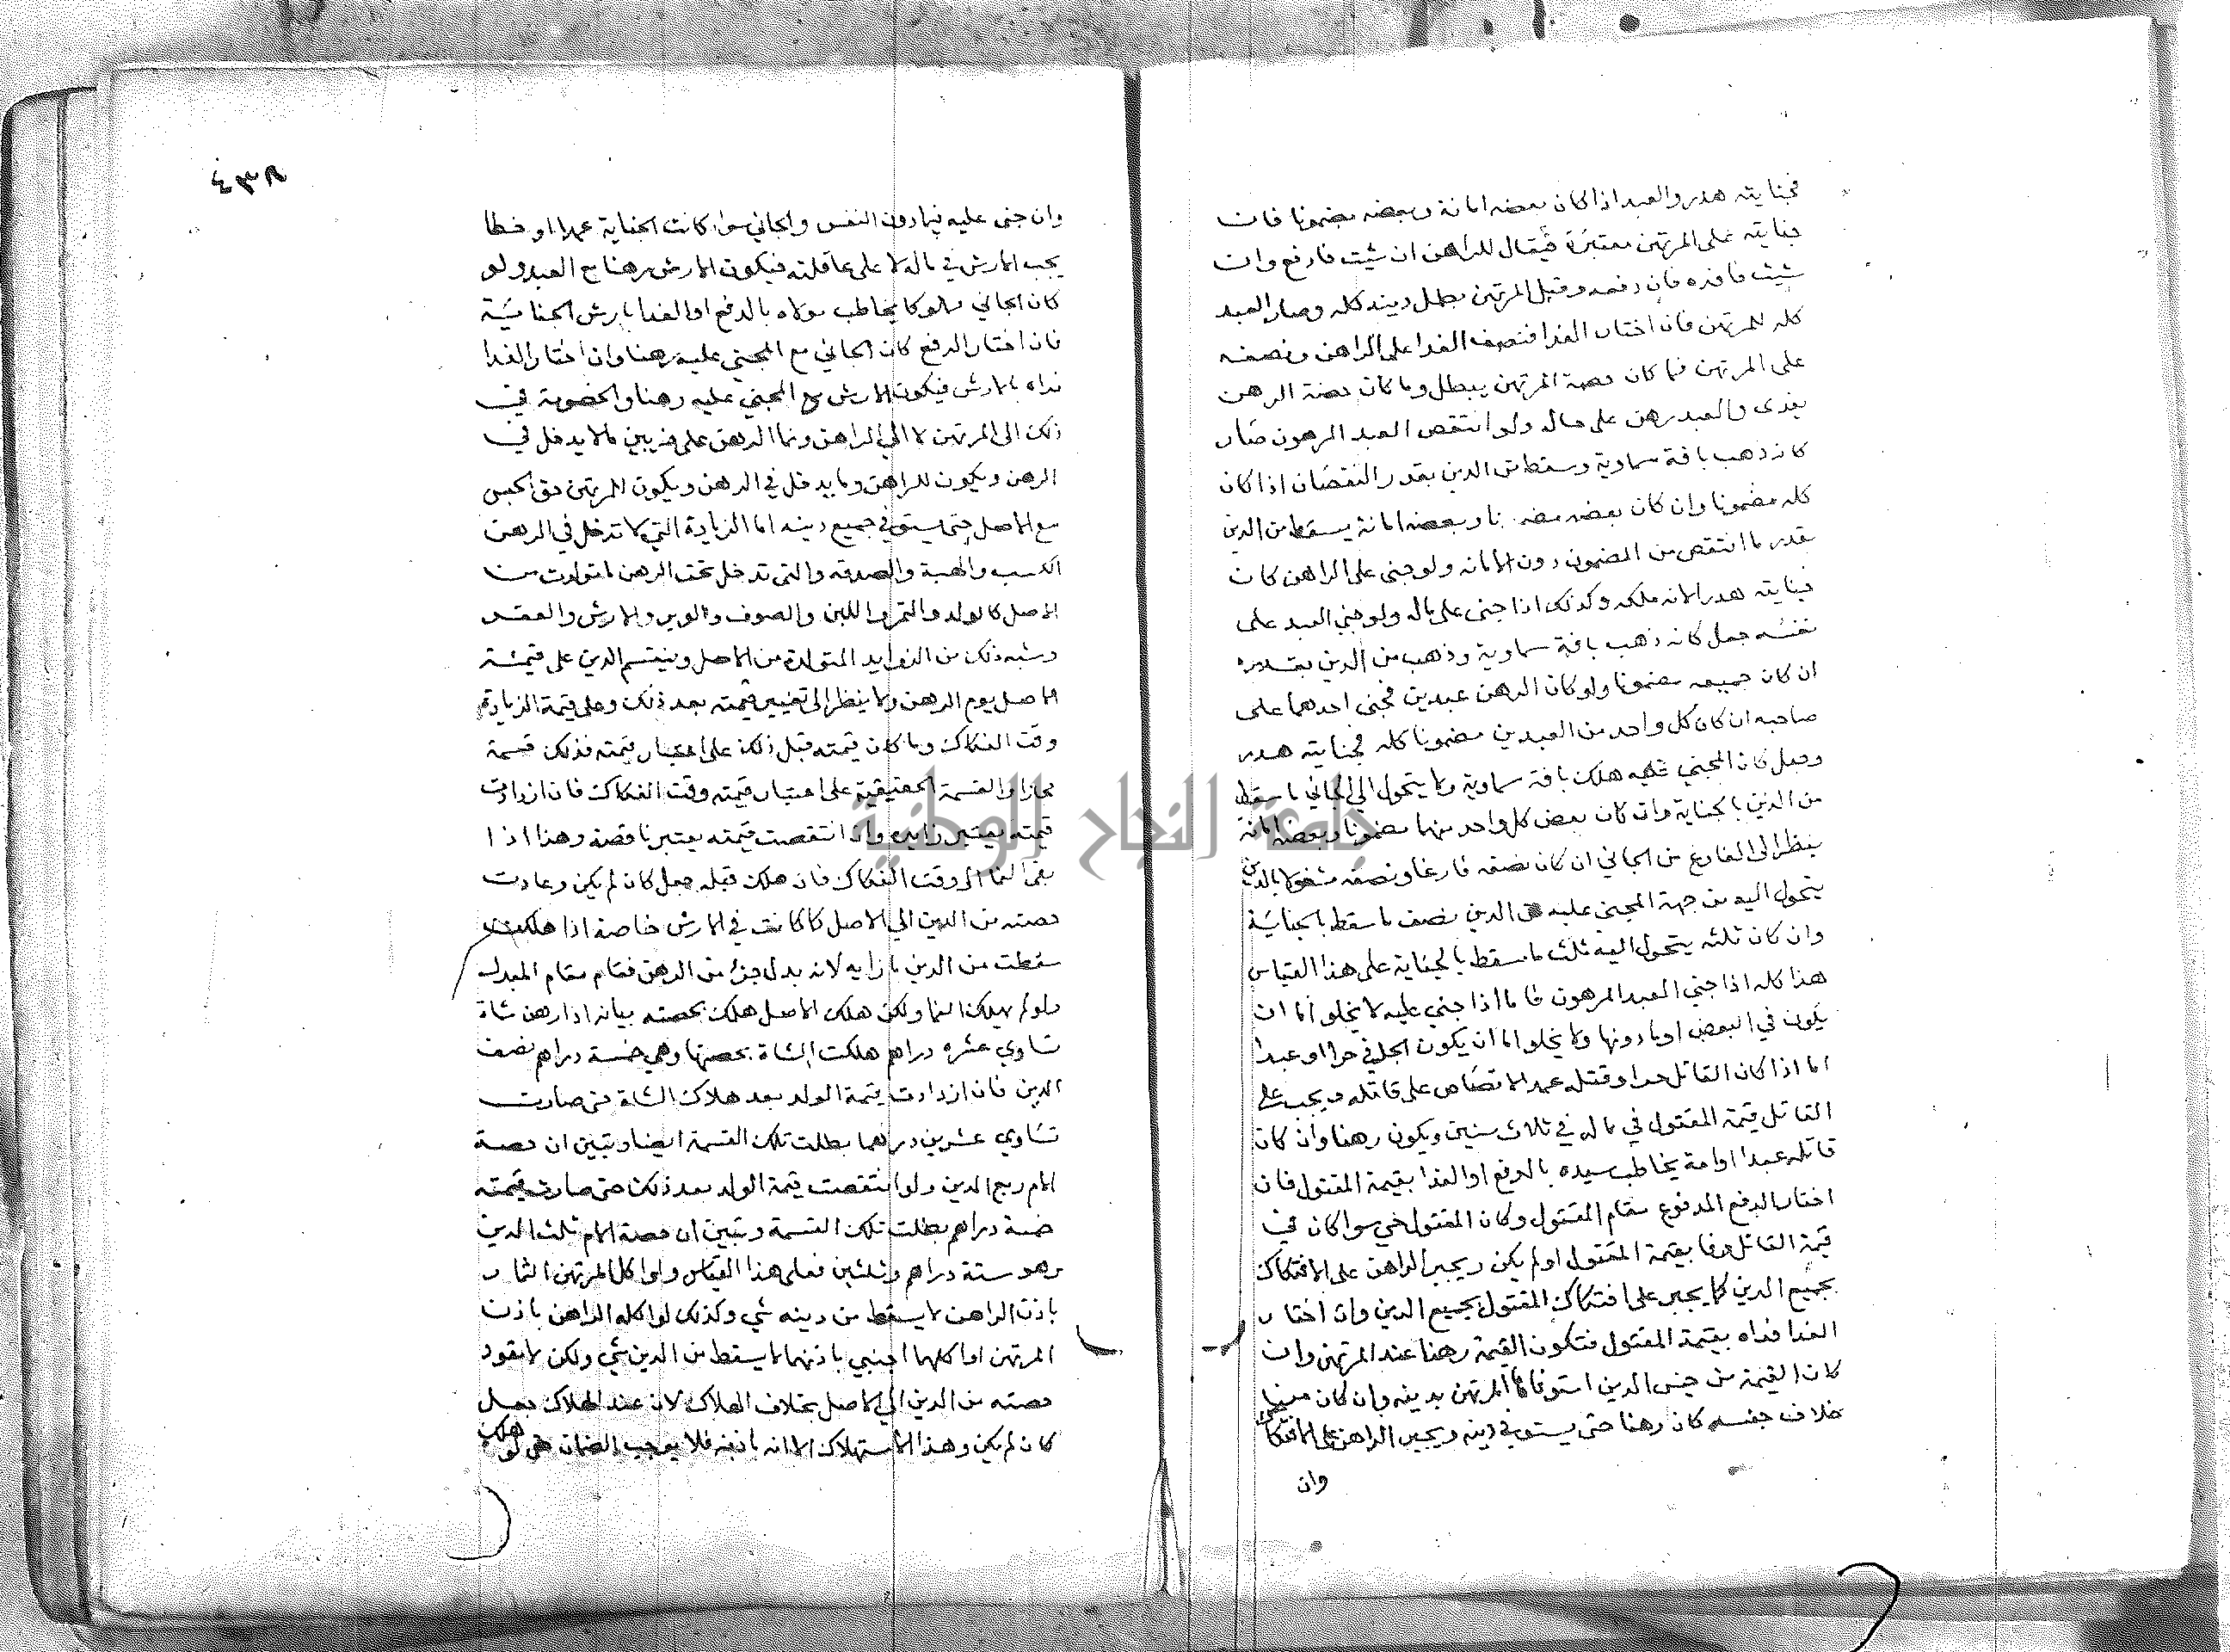 فجنايته هدر والعبد اذا كان بعضه امانة وبعضه مضمونا فان
جنايته على المرتهن معتبرة فيقال للراهن ان شيت فادفع وان
شيت فافده فان دفعه وقبل المرتهن بطل دينه كله وصار العبد
كله للمرتهن فان اختار الفدا فنصف الفدا على الراهن ونصفه
على المرتهن فما كان حصة المرتهن يبطل وما كان حصة الرهن
يفدى والعبد رهن على حاله ولو انتقص العبد المرهون صار
كانه ذهب بافة سماوية وسقط من الدين بقدر النقصان اذا كان
كله مضمونا وان كان بعضه مضمونا وبعضه امانة يسقط من الدين
بقدر ما انتقص من المضمون دون الامانه ولو جنى على الراهن كان
جنايته هدر الانه ملكه وكذلك اذا جنى على ماله ولو جني العبد على
نفسه جعل كانه ذهب بافة سماوية وذهب من الدين بقدره
ان كان جميعه مضمونا ولو كان الرهن عبدين فجنى احدهما على
صاحبه ان كان كل واحد من العبدين مضمونا كله فجنايته هدر
وجعل كان المجني عليه هلك بافة سماوية ولا يتحول الى الجاني ما سقط
من الدين بالجناية وان كان بعض كل واحد منهما مضمونا وبعضه امانة
ينظر الى الفارغ من الجاني ان كان نصفه فارغا ونصفه مشغولا بالدين
يتحول اليه من جهة المجني عليه من الدين نصف ما سقط بالجناية
وان كان ثلثه يتحول اليه ثلث ما سقط بالجناية على هذا القياس
هذا كله اذا جني العبد المرهون فاما اذا جني عليه لا يخلو اما ان
يكون في البعض او ما دونها ولا يخلو اما ان يكون الجاني حرا او عبدا
اما اذا كان القاتل حرا وقتله عمدا لا قصاص على قاتله ويجب على
القاتل قيمة المقتول في ماله في ثلاث سنين ويكون رهنا وان كان
قاتله عبدا او امة يخاطب سيده بالدفع او الفدا بقيمة المقتول فان
اختار الدفع المدفوع مقام المقتول وكان المقتول حي سوا كان في
قيمة القاتل وفا بقيمة المقتول او لم يكن ويجبر الراهن على الافتكاك
بجميع الدين كما يجبر على افتكاك المقتول بجميع الدين وان اختار
الفدا فداه بقيمة المقتول فتكون القيمة رهنا عند المرتهن وان
كان القيمة من جنس الدين استوفاها المرتهن بدينه وان كان
خلاف جنسه كان رهنا حتى يستوفي دينه ويجبر الراهن على الافتكاك
وان
٤٣٨
وان جنى عليه فيما دون النفس والجاني سوا كانت الجناية عمدا او خطا
يجب الارش في ماله لا على عاقلته فيكون الارش رهنا مع العبد ولو
كان الجاني مملوكا يخاطب مولاه بالدفع او الفدا بارش الجناية
فان اختار الدفع كان الجاني مع المجني عليه رهنا وان اختار الفدا
فداه بالارش فيكون الارش مع المجني عليه رهنا والخصومة في
ذلك الى المرتهن لا الى الراهن ونما الرهن على ضربين ما لا يدخل في
الرهن ويكون للراهن وما يدخل في الرهن ويكون للمرتهن حق الحبس
مع الاصل حتى يستوفي جميع دينه اما الزيادة التي لا تدخل في الرهن
الكسب والهبة والصدقه والتى تدخل تحت الرهن ما تولدت من
الاصل كالولد والثمر واللبن والصوف والوبر والارش والعقر
وشبه ذلك من الزوايد المتولدة من الاصل وينقسم الدين على قيمة
الاصل يوم الرهن ولا ينظر الى تغيير قيمته بعد ذلك وعلى قيمة الزيادة
وقت الفكاك وما كان قيمته قبل ذلك على اعتبار قيمته فذلك قسمة
مجازا والقسمة الحقيقية على اعتبار قيمته وقت الفكاك فان ازدادت
قيمته يعتبر زايدة وان انتقصت قيمته يعتبر ناقصة وهذا اذا
بقى النما الى وقت الفكاك فان هلك قبله جعل كان لم يكن وعادت
حصته من الدين الى الاصل كما كانت في الارش خاصة اذا هلكت
سقطت من الدين بازايه لانه بدل جزء من الرهن فقام مقام المبدل
ولو لم يهلك النما ولكن هلك الاصل هلك بحصته بيانه اذا رهن شاة
تساوي عشره دراهم هلكت الشاة بحصتها وهي خمسة دراهم نصف
الدين فان ازدادت قيمة الولد بعد هلاك الشاة حتى صارت
تساوي عشرين درهما بطلت تلك القسمة ايضا وتبين ان حصة
الام ربع الدين ولو انتقصت قيمة الولد بعد ذلك حتى صارت قيمته
خمسة دراهم بطلت تلك القسمة وتبين ان حصة الام ثلث الدين
وهو ستة دراهم وثلثين فعلى هذا القياس ولو اكل المرتهن الثمار
باذن الراهن لا يسقط من دينه شي وكذلك لو اكله الراهن باذن
المرتهن او اكلها اجنبي باذنهما لا يسقط من الدين شي ولكن لا يعود
حصته من الدين الى الاصل بخلاف الهلاك لان عند الهلاك يجعل
كان لم يكن وهذا الاستهلاك الا انه باذنه فلا يوجب الضمان حتى لو هلك